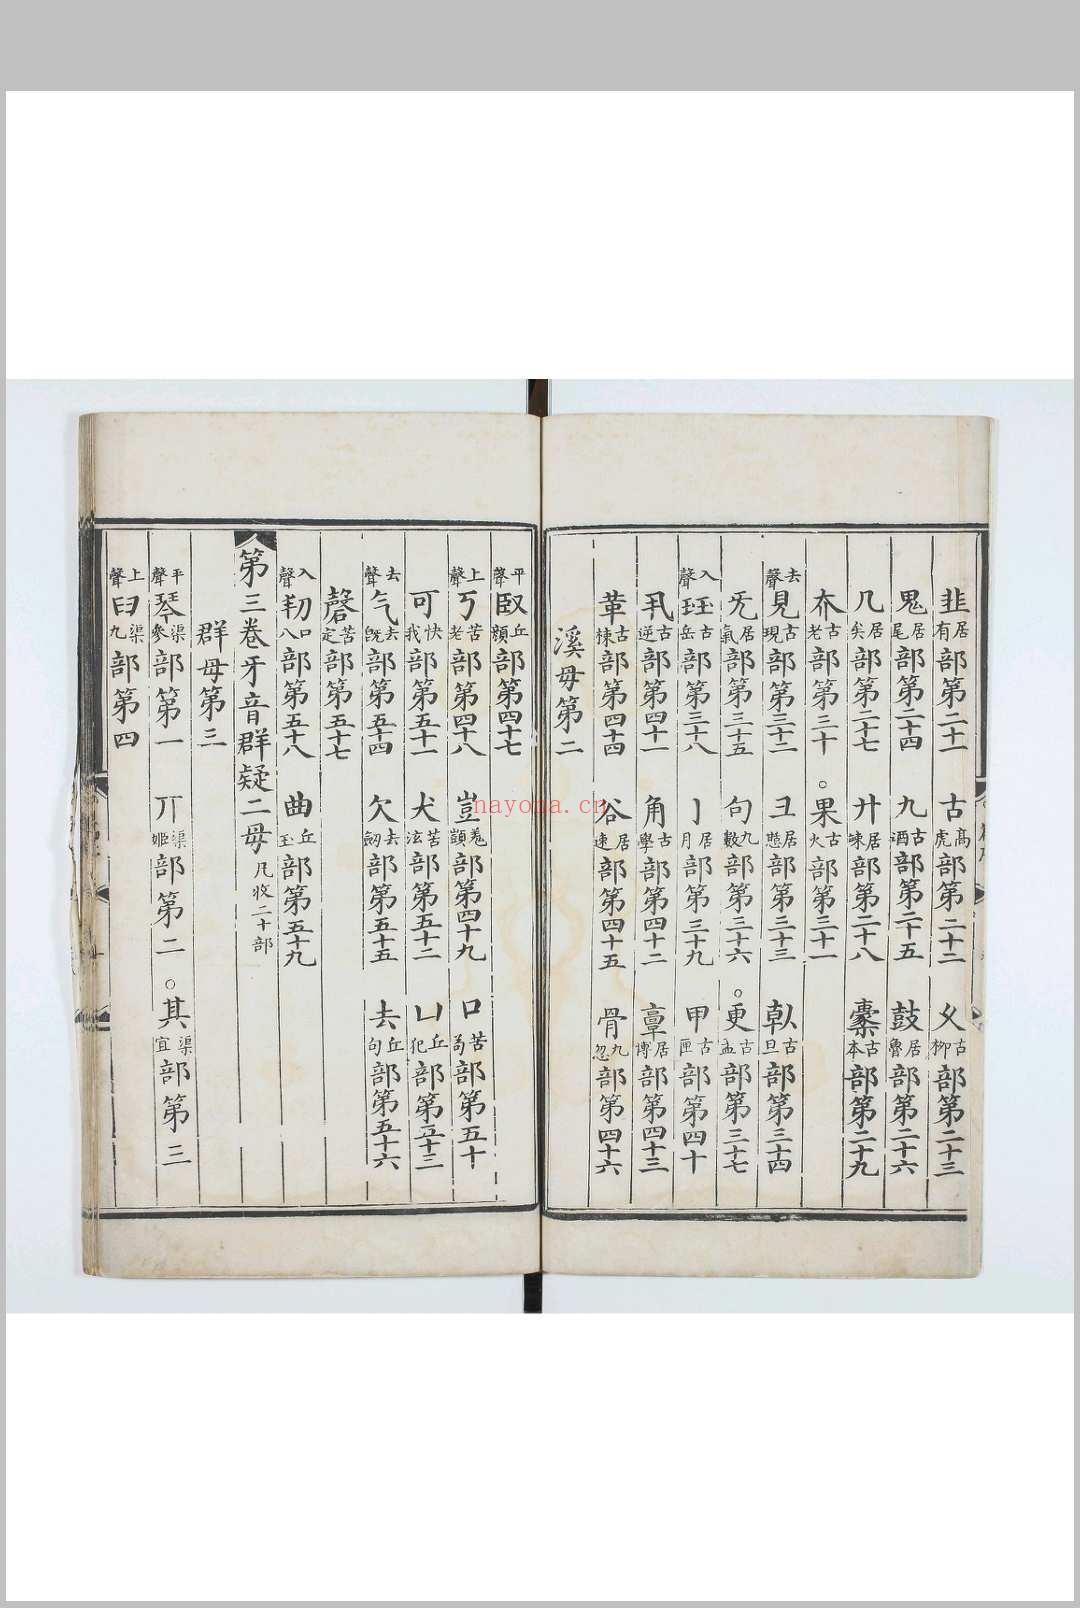 韭居有部第二十一 古高虎部第二十二 攵古柳部第二十三
鬼居尾部第二十四 九古酒部第二十五 鼓居魯部第二十六
几居矣部第二十七 廾居竦部第二十八 橐古本部第二十九
夰古老部第三十 果古火部第三十一
去聲 見古現部第三十二 丑居懃部第三十三 倝古旦部第三十四
旡居氣部第三十五 句九數部第三十六 更古孟部第三十七
入聲 玨古岳部第三十八 亅居月部第三十九 甲古匣部第四十
丮古逆部第四十一 角古學部第四十二 𩫏居博部第四十三
革古楝部第四十四 谷居速部第四十五 骨九忽部第四十六
溪母第二
平聲 臤丘頸部第四十七
上聲 丂苦老部第四十八 豈卷顗部第四十九 口苦苟部第五十
可快我部第五十一 犬苦泫部第五十二 凵丘犯部第五十三
去聲 气去旣部第五十四 欠去劔部第五十五 去丘句部第五十六
磬苦定部第五十七
入聲 㓞口八部第五十八 曲丘玉部第五十九
第三卷牙音群疑二母凡收二十部
群母第三
平聲 琴渠參部第一 丌渠姬部第二 其渠宜部第三
上聲 臼渠九部第四
nayona.cn